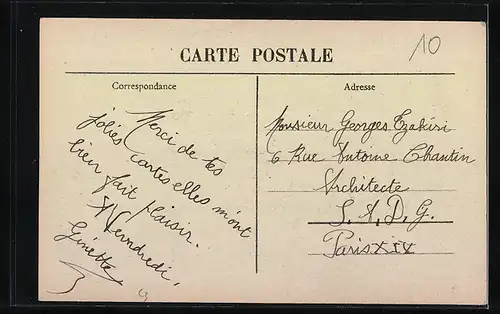 10
CARTE POSTALE
Correspondance
Merci de tes
jolies cartes elles m'ont
bien fait plaisir.
A Vendredi,
Ginette
Adresse
Monsieur Georges Tzakiri
6 Rue Antoine Chantin
Architecte
S. A. D. G.
Paris XIV